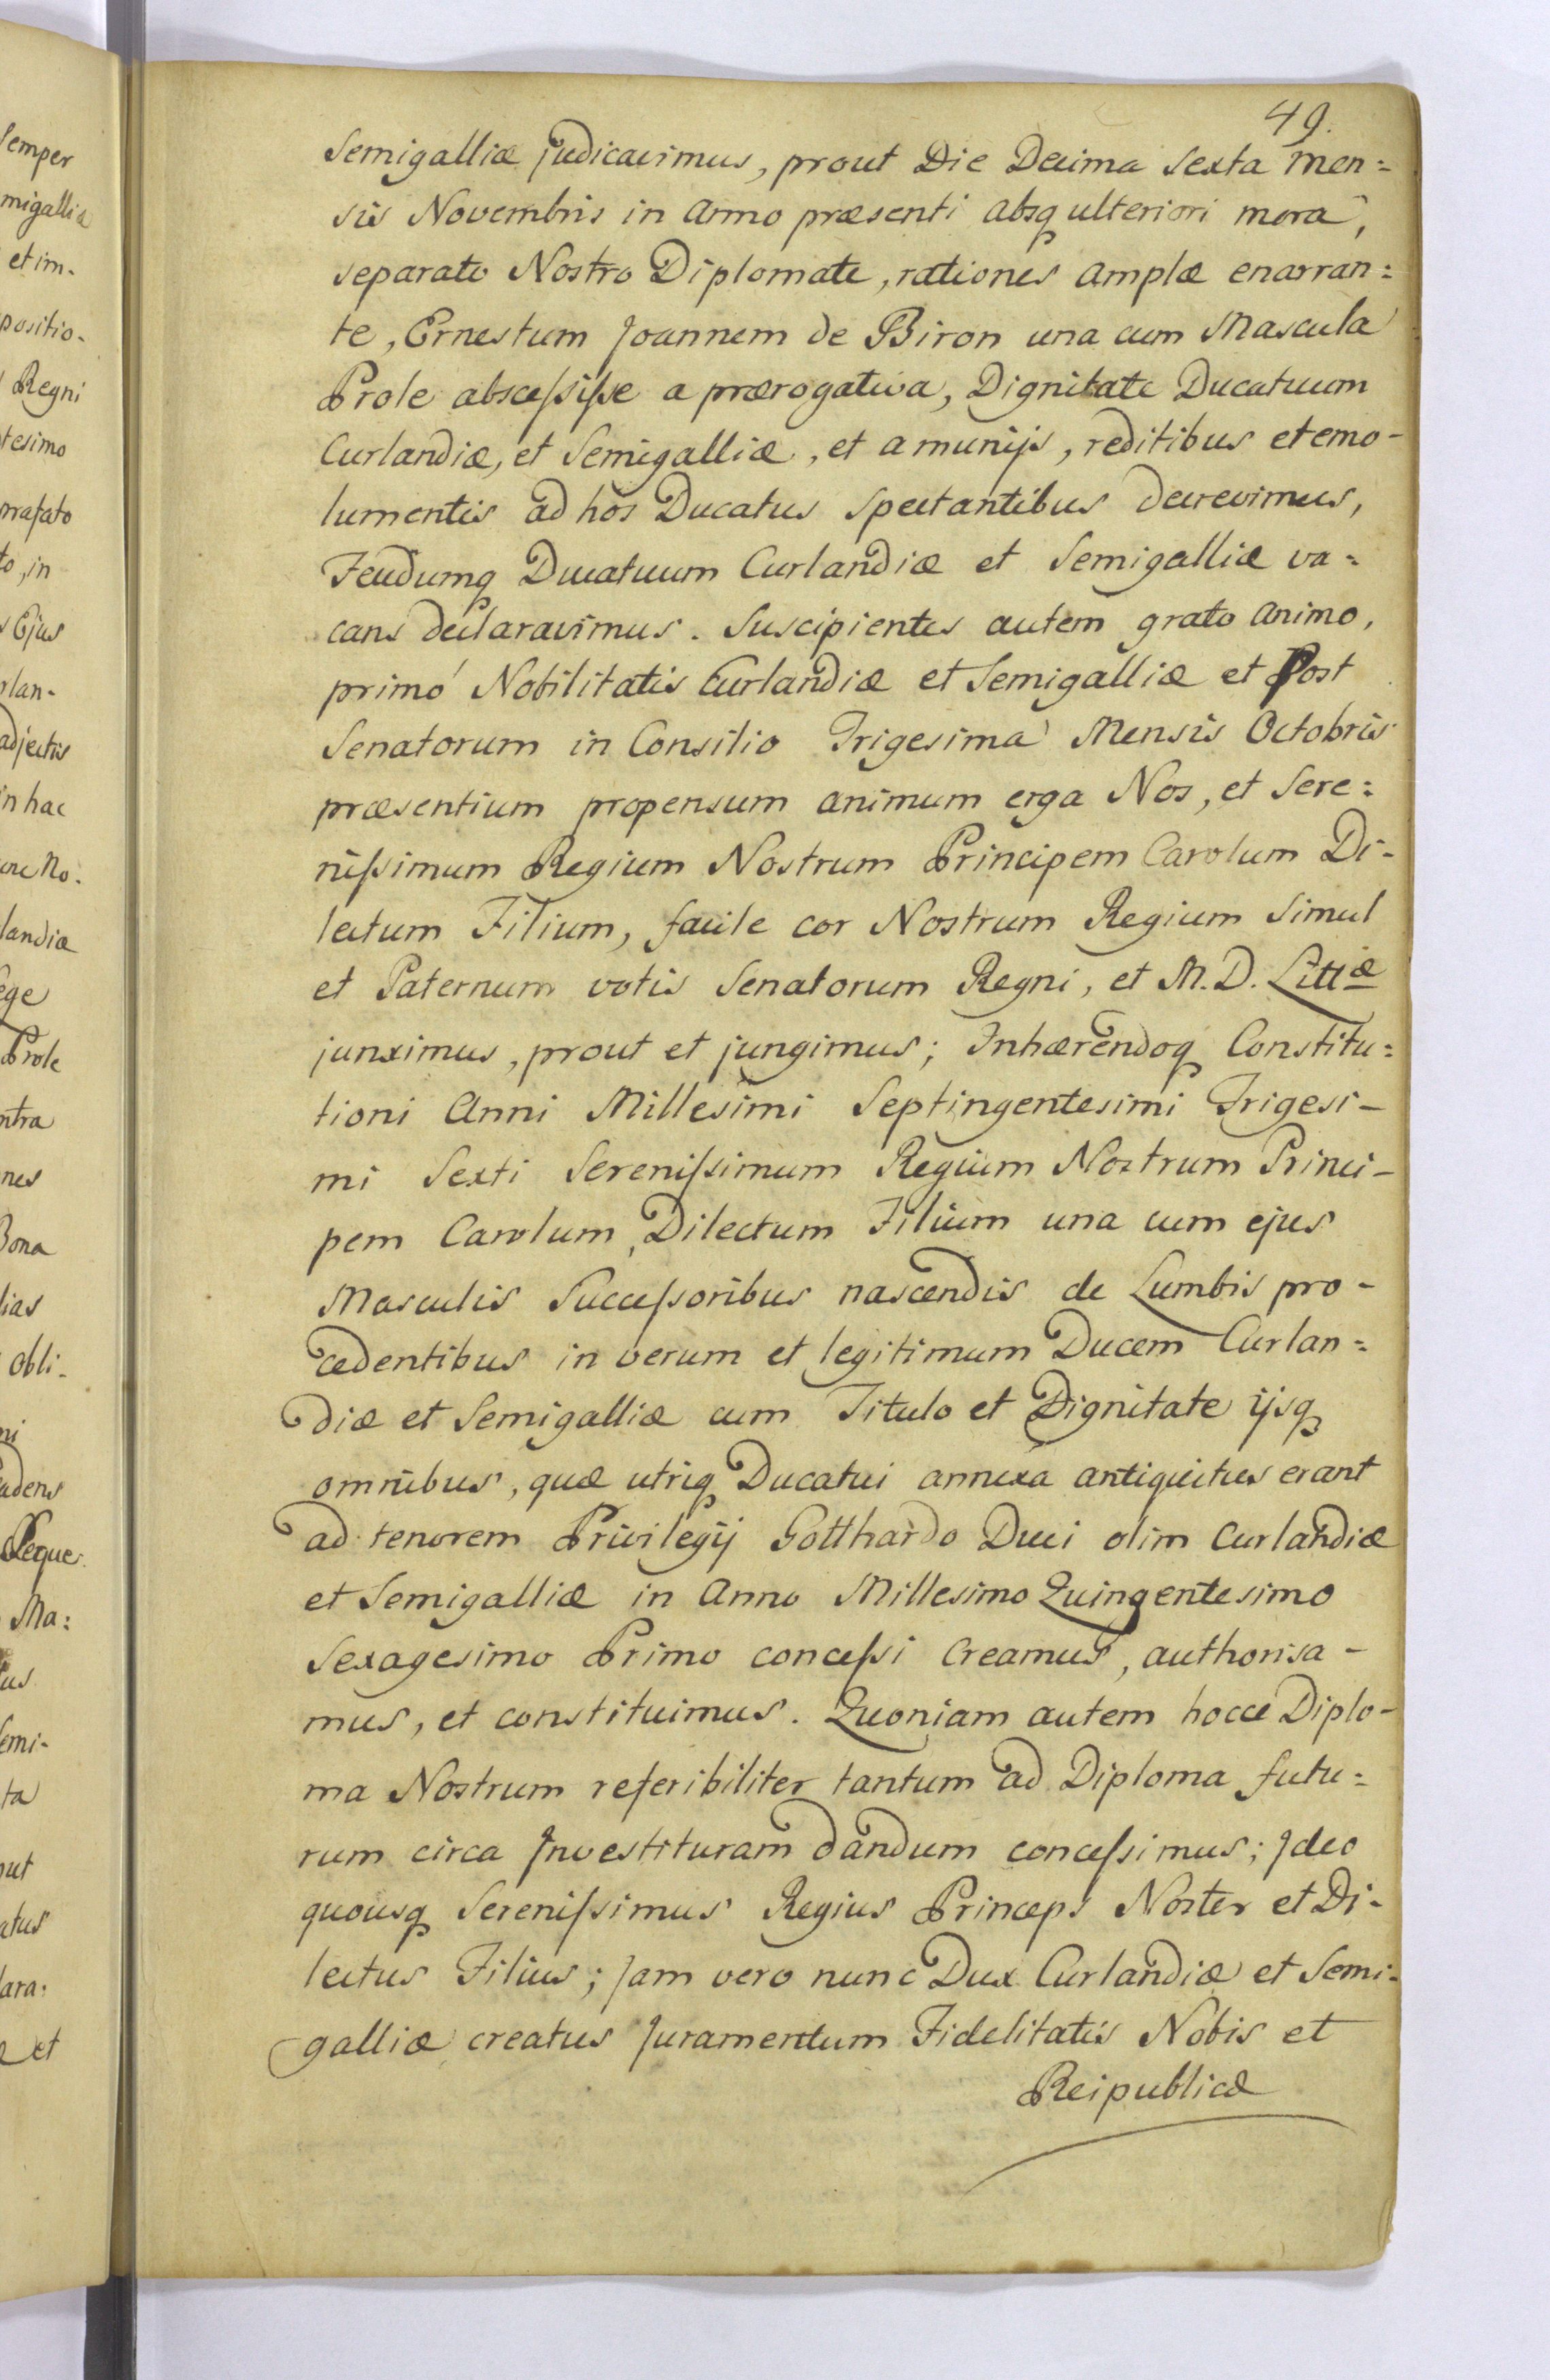 49.
Semigalliæ judicavimus, prout Die Decima Sexta men=
sis Novembris in Anno præsenti absq ulteriori mora,
separato Nostro Diplomate, rationes amplæ enarran=
te, Ernestum Joannem de Biron una cum Mascula
Prole abscessisse a prærogativa, Dignitate Ducatuum
Curlandiæ, et Semigalliæ, et a munijs, reditibus et emo-
lumentis ad hos Ducatus spectantibus decrevimus,
Feudumq Ducatuum Curlandiæ et Semigalliæ va=
cans declaravimus. Suscipientes autem grato animo,
primó Nobilitatis Curlandiæ et Semigalliæ et Post
Senatorum in Consilio Trigesima Mensis Octobris
præsentium propensum animum erga Nos, et Sere=
nissimum Regium Nostrum Principem Carolum Di-
lectum Filium, facile cor Nostrum Regium Simul
et Paternum votis Senatorum Regni, et M. D. Littiæ
junximus, prout et jungimus; Inhærendoq Constitu=
tioni Anni Millesimi Septingentesimi Trigesi-
mi Sexti Serenissimum Regium Nostrum Princi-
pem Carolum, Dilectum Filium una cum ejus
Masculis Successoribus nascendis de Lumbis pro-
cedentibus in verum et legitimum Ducem Curlan=
diæ et Semigalliæ cum Titulo et Dignitate ijsq
omnibus, quæ utriq Ducatui annexa antiquitus erant
ad tenorem Privilegij Gotthardo Duci olim Curlandiæ
et Semigalliæ in Anno Millesimo Quingentesimo
Sexagesimo Primo concessi Creamus, authorisa-
mus, et constituimus. Quoniam autem hocce Diplo-
ma Nostrum referibiliter tantum ad Diploma futu=
rum circa Investituram dandum concessimus; Ideo
quousq Serenissimus Regius Princeps Noster et Di-
lectus Filius; Jam vero nunc Dux Curlandiæ et Semi-
galliæ creatus Juramentum Fidelitatis Nobis et
Reipublicæ